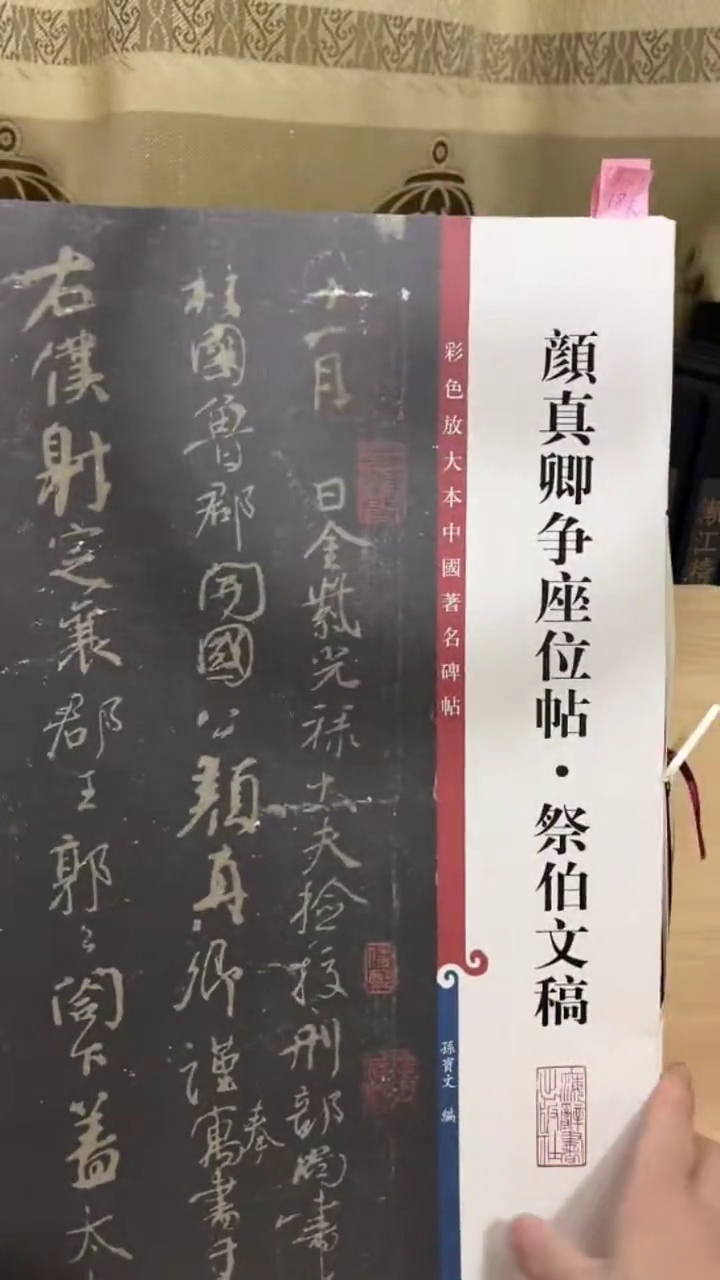 顏真卿争座位帖·祭伯文稿
彩色放大本中國著名碑帖
孫寶文 編
海辭書出版社
十一月 日金紫光祿大夫撿挍刑部尚書
柱國魯郡開國公顏真卿謹奉寓書于
右僕射定襄郡王郭公閤下蓋太